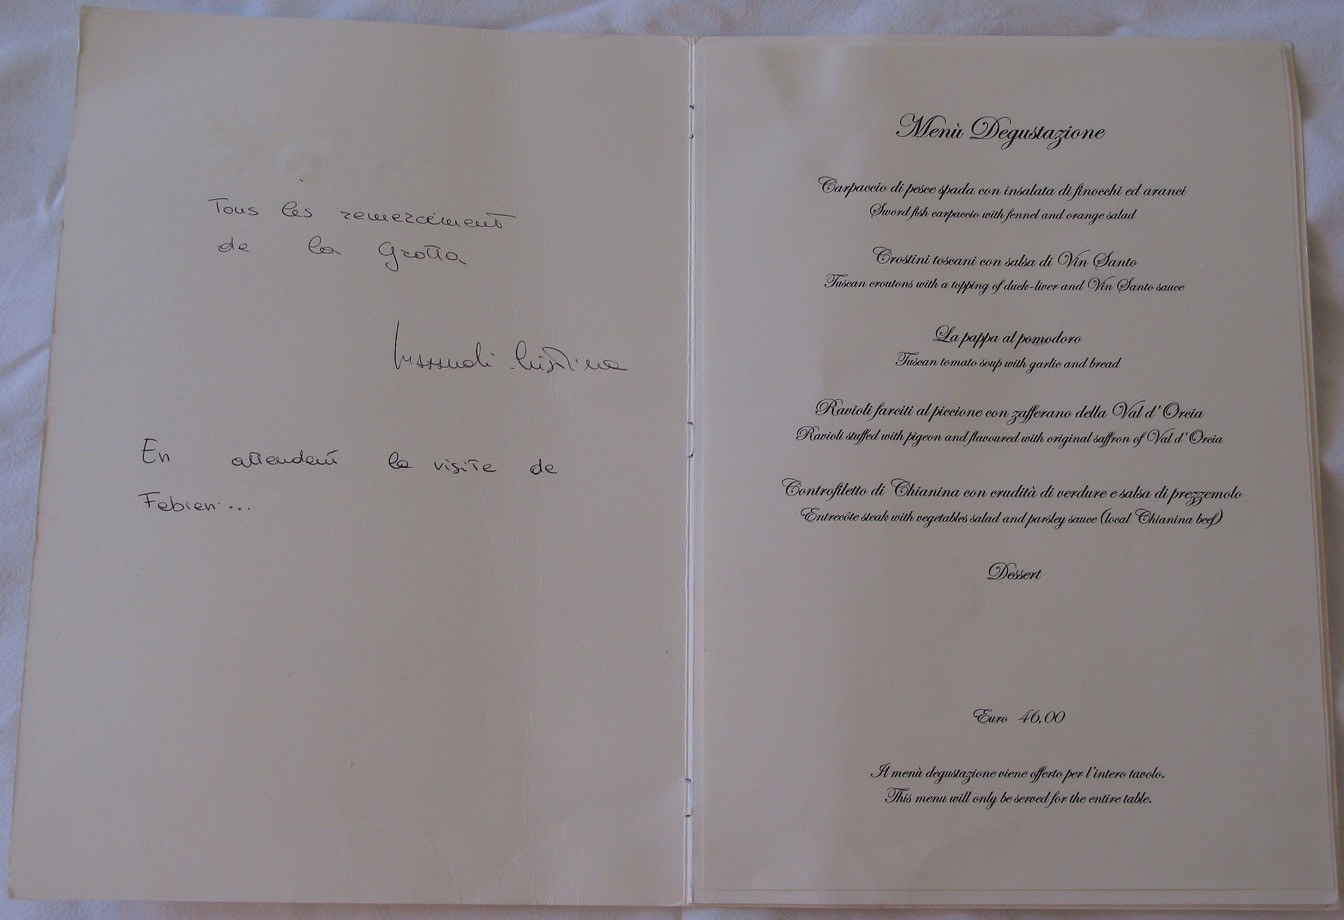 Tous les remerciment
de la Grotta
En attendent la visite de
Febien...
Menù Degustazione
Carpaccio di pesce spada con insalata di finocchi ed aranci
Sword fish carpaccio with fennel and orange salad
Crostini toscani con salsa di Vin Santo
Tuscan croutons with a topping of duck-liver and Vin Santo sauce
La pappa al pomodoro
Tuscan tomato soup with garlic and bread
Ravioli farciti al piccione con zafferano della Val d'Orcia
Ravioli stuffed with pigeon and flavoured with original saffron of Val d'Orcia
Controfiletto di Chianina con crudità di verdure e salsa di prezzemolo
Entrecóte steak with vegetables salad and parsley sauce (local Chianina beef)
Dessert
Euro 46,00
Il menù degustazione viene offerto per l'intero tavolo.
This menu will only be served for the entire table.